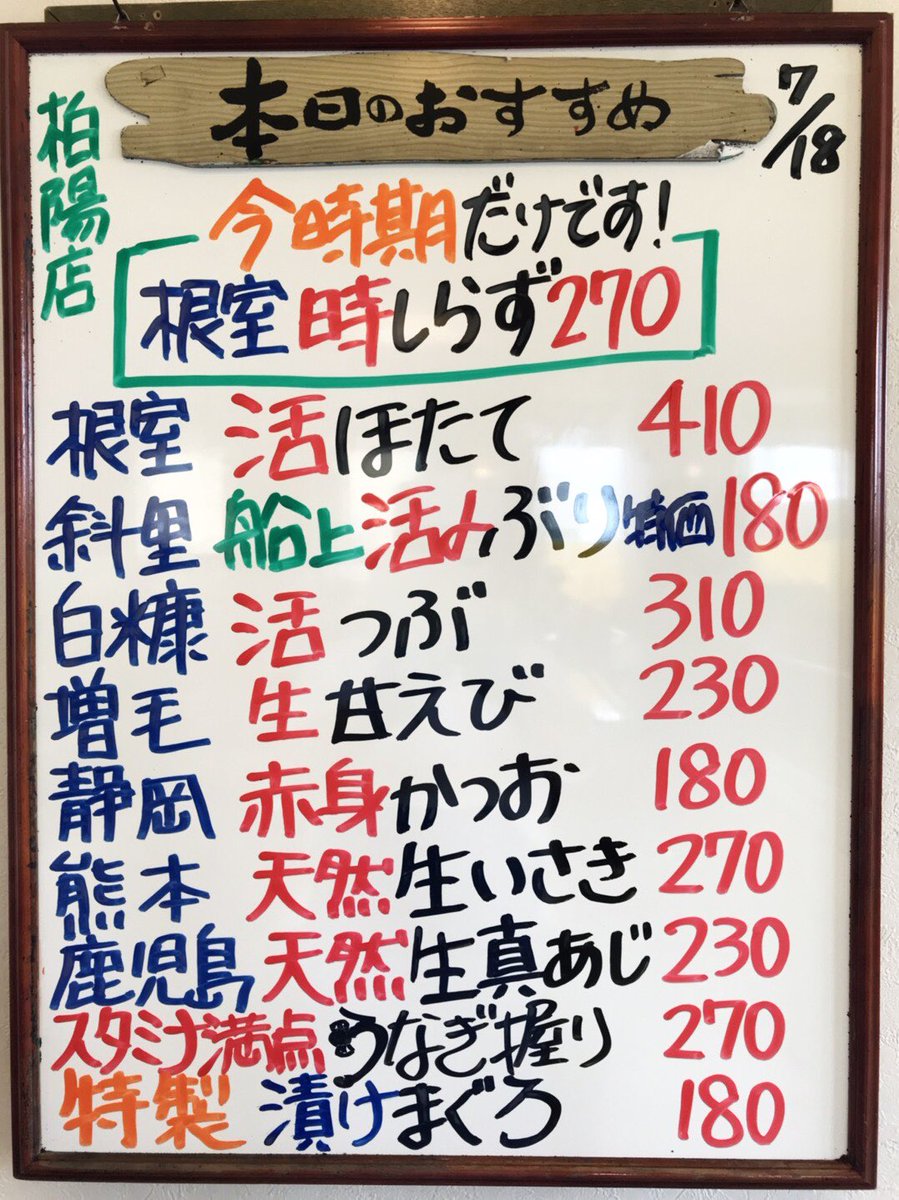 本日のおすすめ
7/18
柏陽店
今時期だけです!
根室 時しらず 270
根室 活ほたて 410
斜里 船上活〆ぶり 特価 180
白糠 活つぶ 310
増毛 生甘えび 230
静岡 赤身かつお 180
熊本 天然生いさき 270
鹿児島 天然生真あじ 230
スタミナ満点 うなぎ握り 270
特製 漬けまぐろ 180